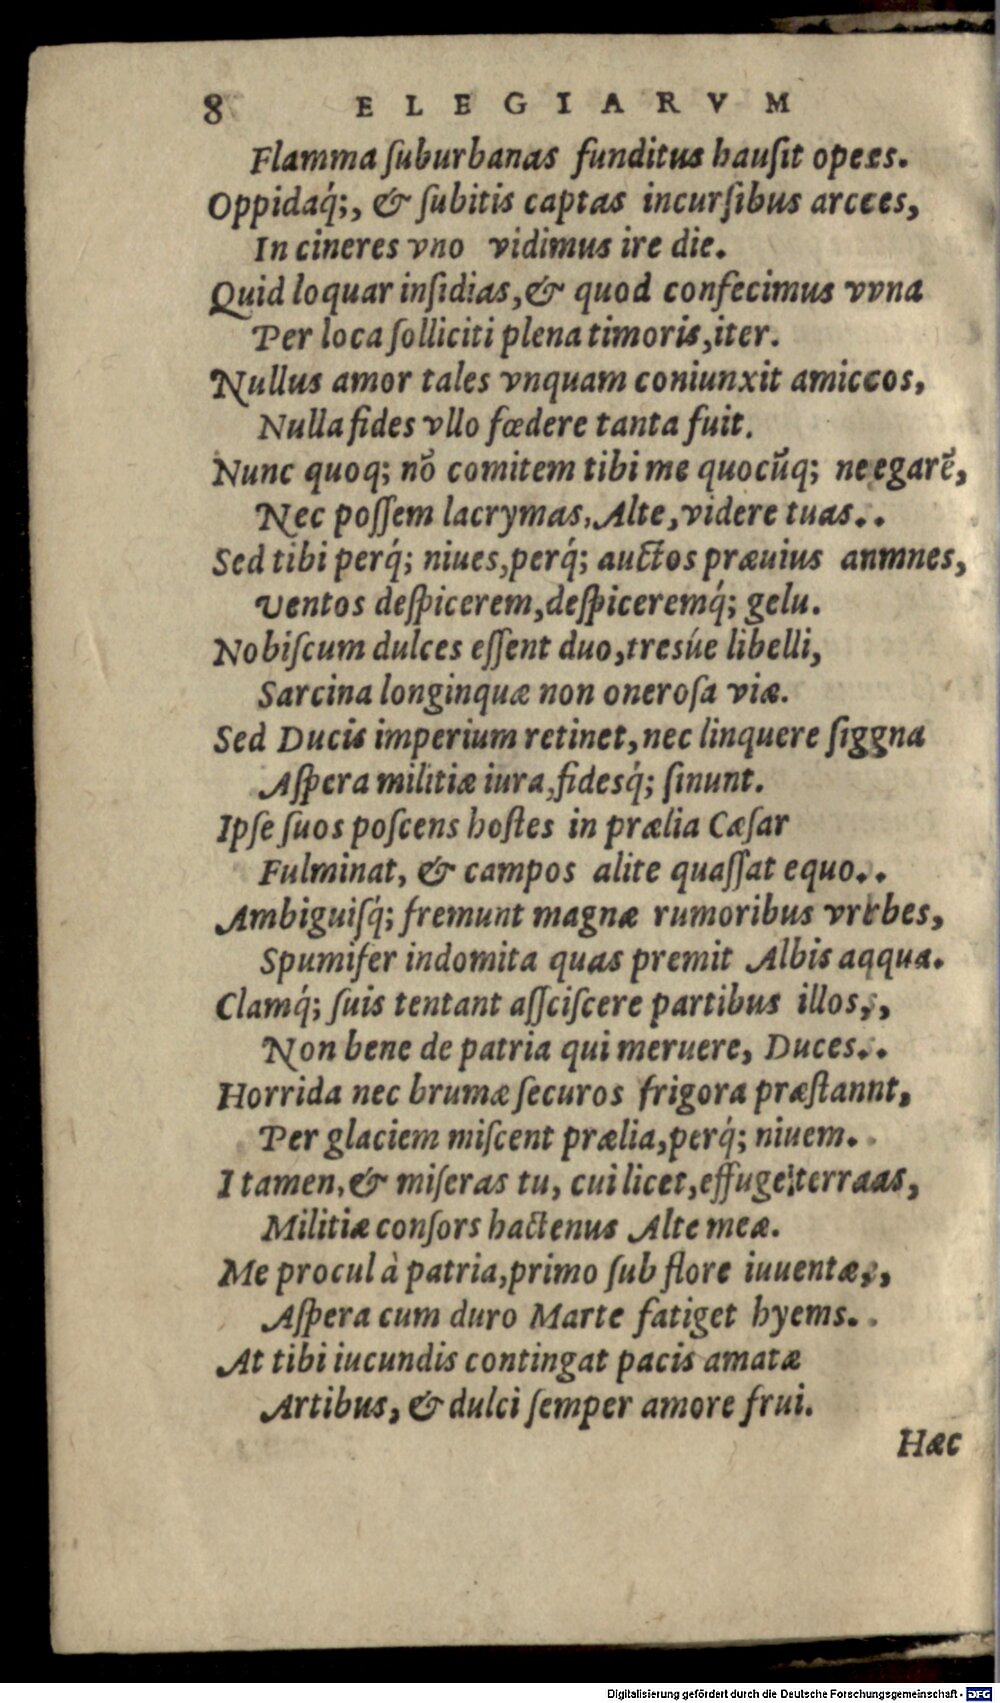 8 ELEGIARVM
Flamma ſuburbanas funditus hauſit opees.
Oppidaq́;, & ſubitis captas incurſibus arcces,
In cineres vno vidimus ire die.
Quid loquar inſidias, & quod confecimus vvna
Per loca ſolliciti plena timoris, iter.
Nullus amor tales vnquam coniunxit amiccos,
Nulla fides vllo fœdere tanta fuit.
Nunc quoq; nō comitem tibi me quocūq; neegarē,
Nec poſſem lacrymas, Alte, videre tuas..
Sed tibi perq́; niues, perq́; auctos præuius anmnes,
Ventos deſpicerem, deſpiceremq́; gelu.
Nobiſcum dulces eſſent duo, tresúe libelli,
Sarcina longinquæ non oneroſa viæ.
Sed Ducis imperium retinet, nec linquere ſiggna
Aſpera militiæ iura, fidesq́; ſinunt.
Ipſe ſuos poſcens hoſtes in prælia Cæſar
Fulminat, & campos alite quaſſat equo..
Ambiguiſq́; fremunt magnæ rumoribus vrrbes,
Spumifer indomita quas premit Albis aqqua.
Clamq́; ſuis tentant aſſciſcere partibus illos,,
Non bene de patria qui meruere, Duces..
Horrida nec brumæ ſecuros frigora præſtannt,
Per glaciem miſcent prælia, perq́; niuem..
I tamen, & miſeras tu, cui licet, effuge terraas,
Militiæ conſors hactenus Alte meæ.
Me procul à patria, primo ſub flore iuuentæ,,
Aſpera cum duro Marte fatiget hyems..
At tibi iucundis contingat pacis amatæ
Artibus, & dulci ſemper amore frui.
Hæc
Digitalisierung gefördert durch die Deutsche Forschungsgemeinschaft - DFG